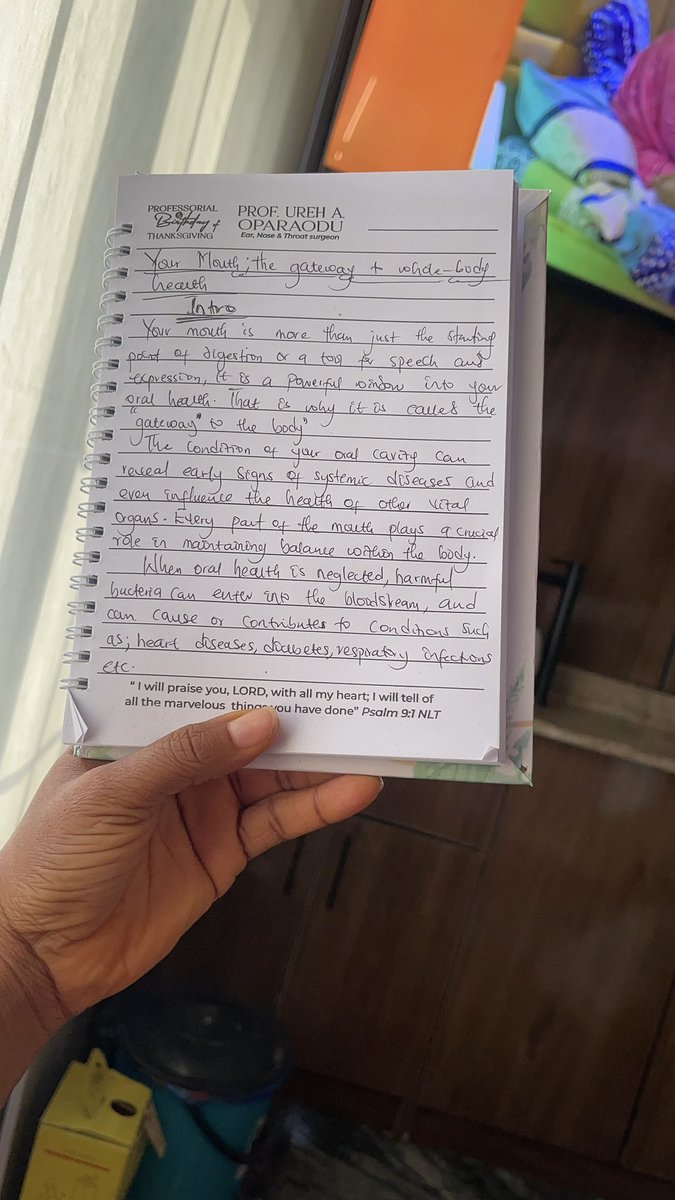 PROFESSORIAL
Birthday of
THANKSGIVING
PROF. UREH A.
OPARAODU
Ear, Nose & Throat surgeon
Your Mouth; the gateway t whole-body
health
Intro
Your mouth is more than just the starting
point of digestion or a tool for speech and
expression, It is a powerful window into your
oral health. That is why it is called the
"gateway" to the body"
The condition of your oral cavity can
reveal early signs of systemic diseases and
even influence the health of other vital
organs. Every part of the mouth plays a crucial
role in maintaining balance within the body.
When oral health is neglected, harmful
bacteria can enter into the bloodstream, and
can cause or contributes to conditions such
as; heart diseases, diabetes, respiratory infections
etc.
" I will praise you, LORD, with all my heart; I will tell of
all the marvelous things you have done" Psalm 9:1 NLT